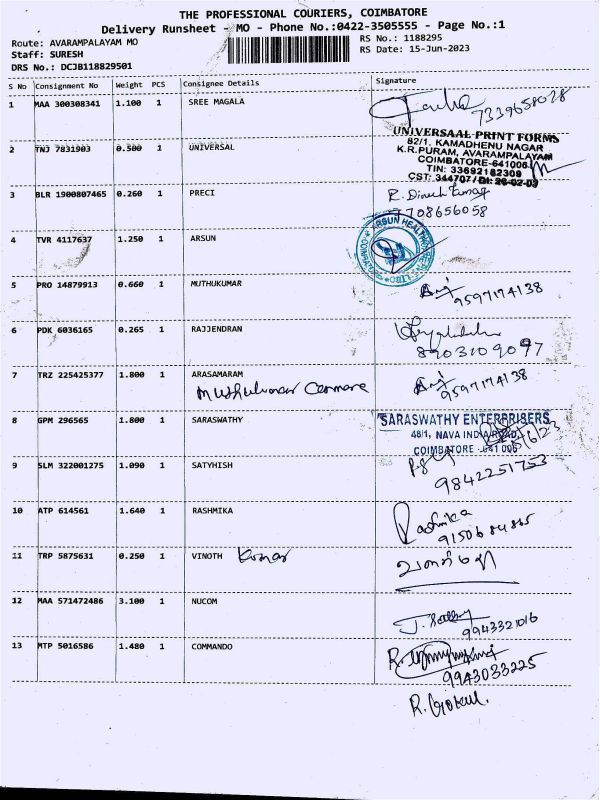 THE PROFESSIONAL COURIERS, COIMBATORE
Delivery Runsheet - MO - Phone No.:0422-3505555 - Page No.:1
Route: AVARAMPALAYAM MO
RS No.: 1188295
Staff: SURESH
RS Date: 15-Jun-2023
DRS No.: DCJB118829501
S No Consignment No Weight PCS Consignee Details Signature
1 MAA 300308341 1.100 1 SREE MAGALA
7339658028
UNIVERSAAL PRINT FORMS
82/1, KAMADHENU NAGAR
K.R.PURAM, AVARAMPALAYAM
COIMBATORE-641006
TIN: 33692182309
CST: 344707 / Dt: 26-02-03
2 TNJ 7831903 0.500 1 UNIVERSAL
3 BLR 1900807465 0.260 1 PRECI
R. Dinesh Kumar
7708656058
4 TVR 4117637 1.250 1 ARSUN
5 PRO 14879913 0.660 1 MUTHUKUMAR
9597174138
6 PDK 6036165 0.265 1 RAJJENDRAN
8903109097
7 TRZ 225425377 1.800 1 ARASAMARAM
9597174138
8 GPM 296565 1.800 1 SARASWATHY
SARASWATHY ENTERPRISERS
48/1, NAVA INDIA ROAD,
COIMBATORE - 641 006
9 SLM 322001275 1.090 1 SATYHISH
9842251753
10 ATP 614561 1.640 1 RASHMIKA
Rashmika
11 TRP 5875631 0.250 1 VINOTH Kumar
12 MAA 571472486 3.100 1 NUCOM
9943321016
13 MTP 5016586 1.480 1 COMMANDO
9943033225
R. Gokul